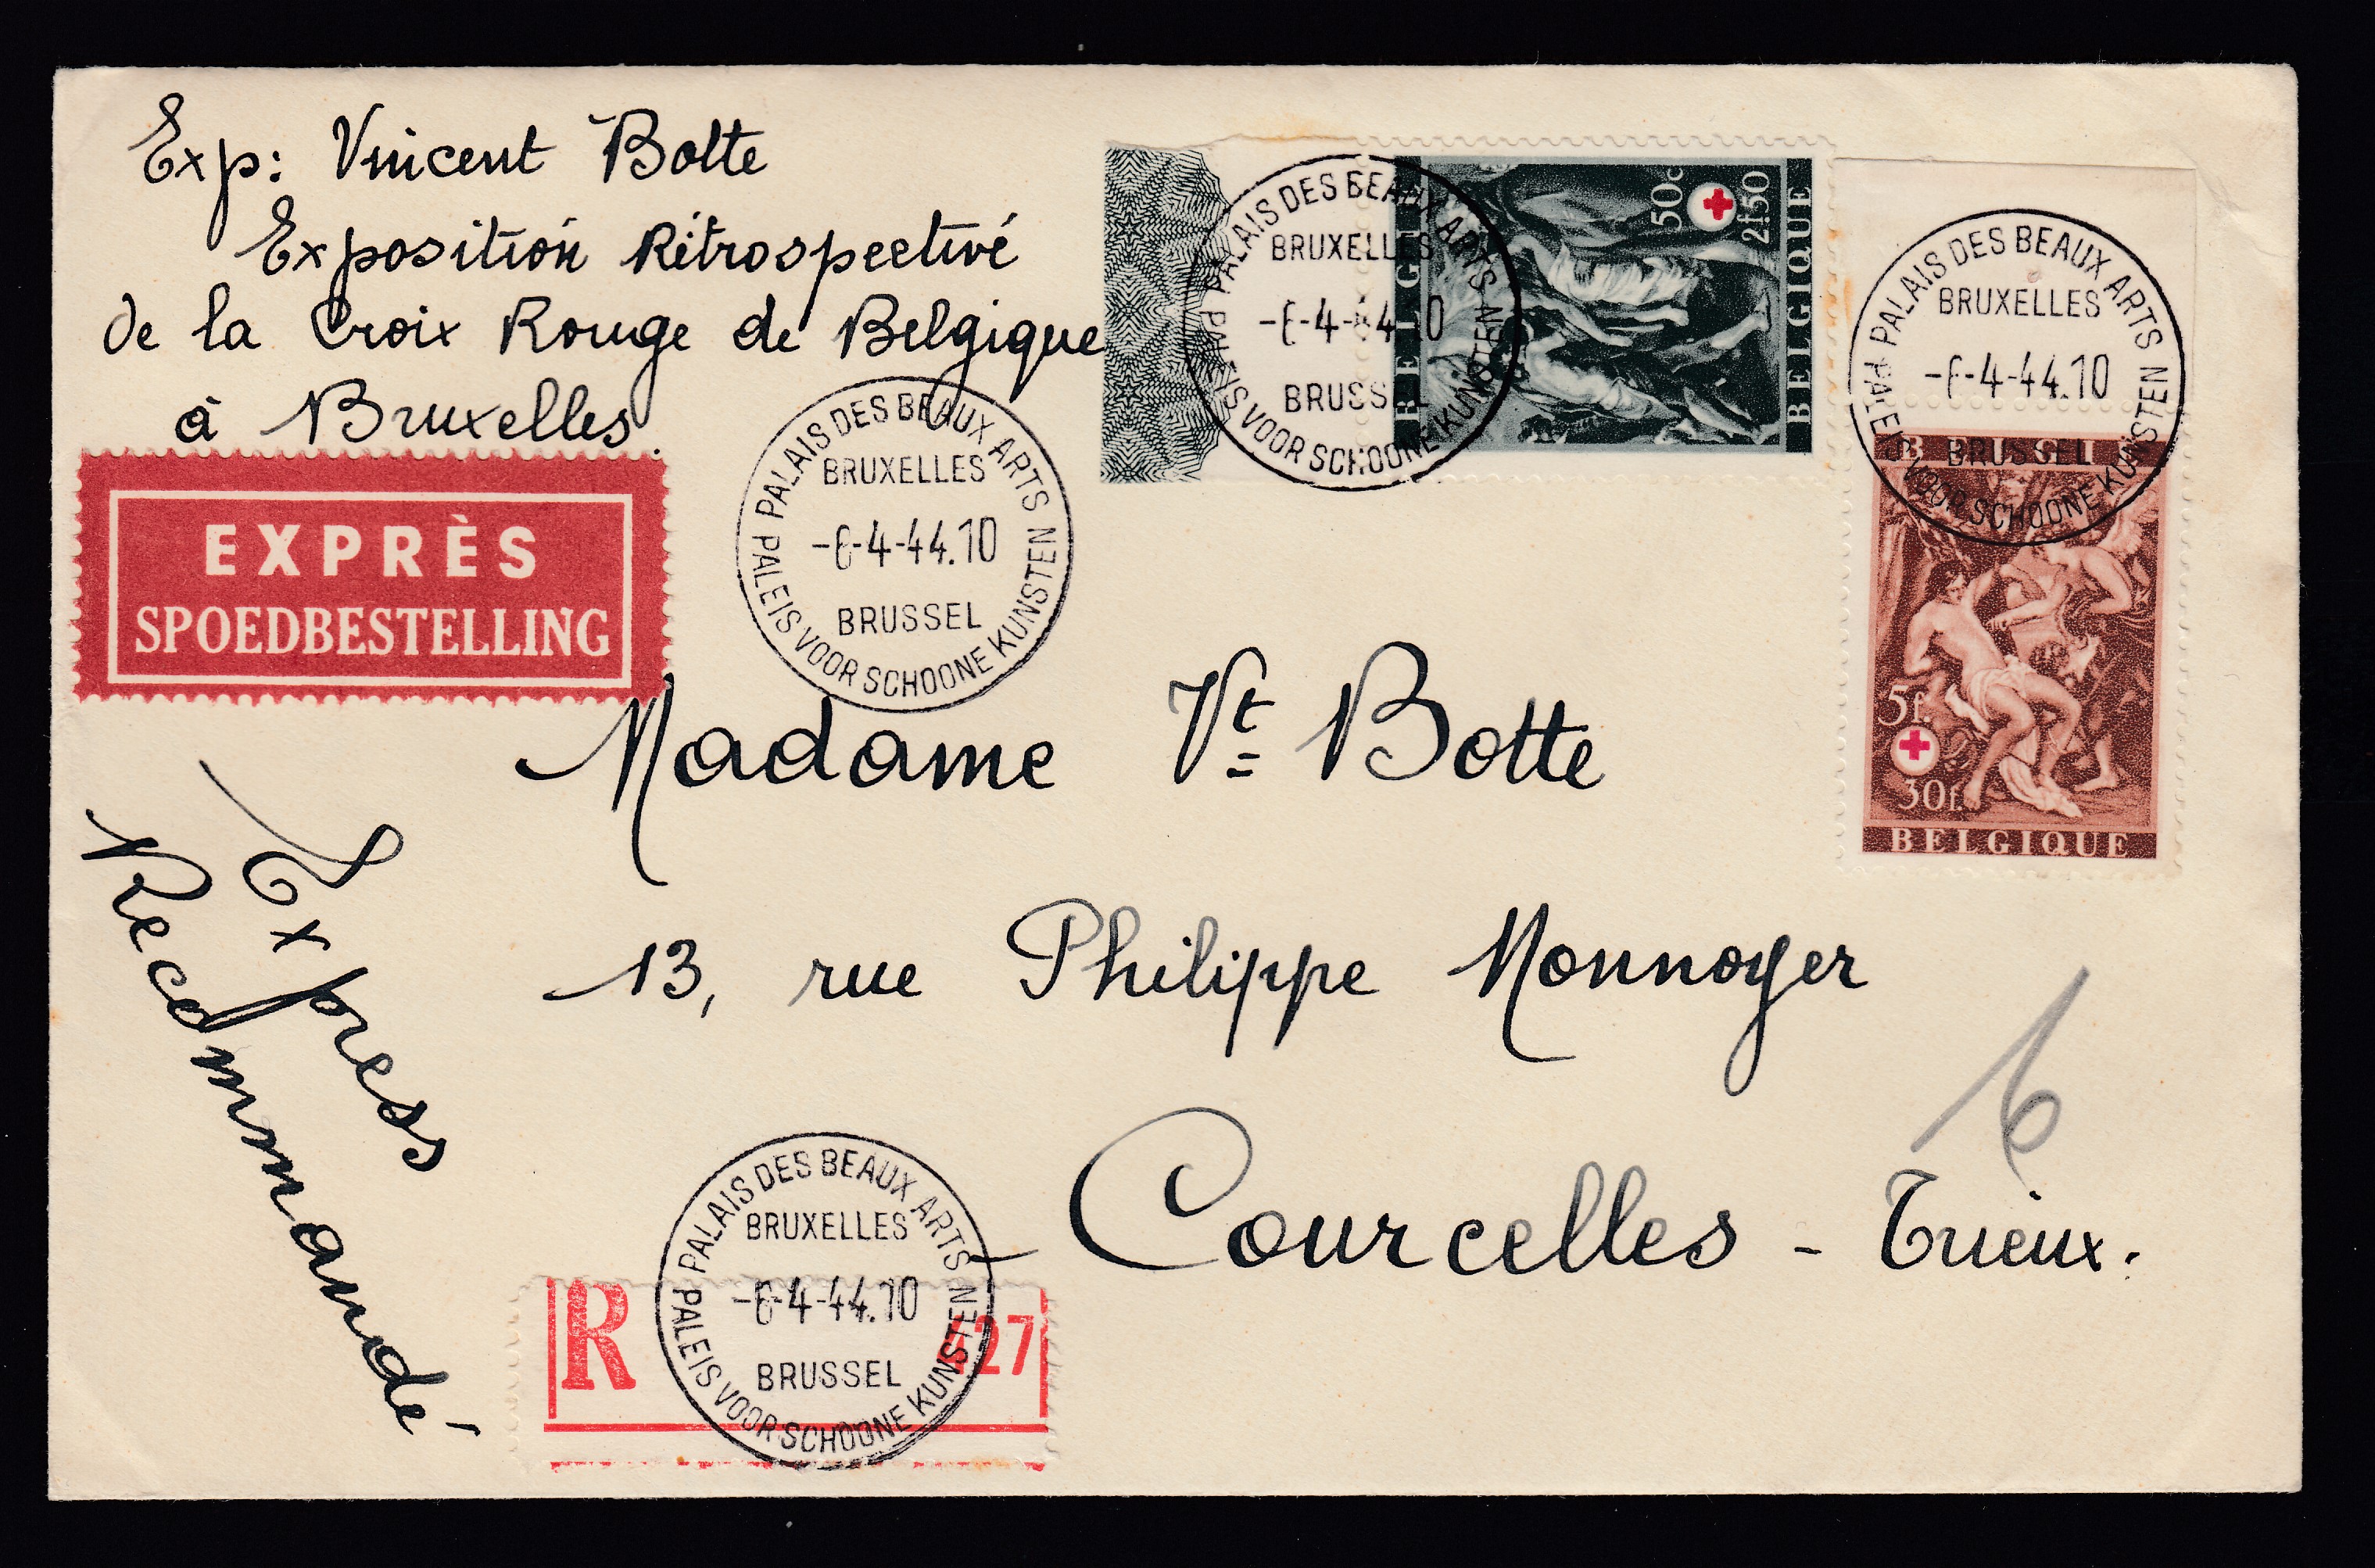 Exp: Vincent Botte
Exposition Rétrospective
de la Croix Rouge de Belgique
à Bruxelles.
EXPRÈS
SPOEDBESTELLING
PALAIS DES BEAUX ARTS
BRUXELLES
-6-4-44.10
BRUSSEL
PALEIS VOOR SCHOONE KUNSTEN
PALAIS DES BEAUX ARTS
BRUXELLES
-6-4-44.10
BRUSSEL
PALEIS VOOR SCHOONE KUNSTEN
50c
2f50
BELGIQUE
PALAIS DES BEAUX ARTS
BRUXELLES
-6-4-44.10
BRUSSEL
PALEIS VOOR SCHOONE KUNSTEN
5f.
30f.
BELGIQUE
Madame Vt Botte
13, rue Philippe Monnoyer
Courcelles - Trieux.
Express
Recommandé
PALAIS DES BEAUX ARTS
BRUXELLES
-6-4-44.10
BRUSSEL
PALEIS VOOR SCHOONE KUNSTEN
R